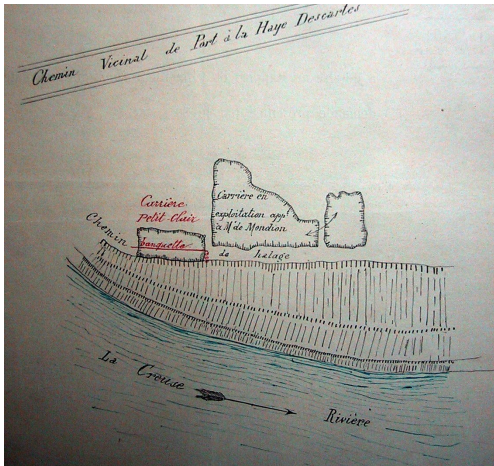 Chemin Vicinal de Port à la Haye Descartes
Carrière
Petit Clair
Carrière en
exploitation app.t
à M.r de Mondion
Chemin
banquette
de halage
La Creuse
Rivière